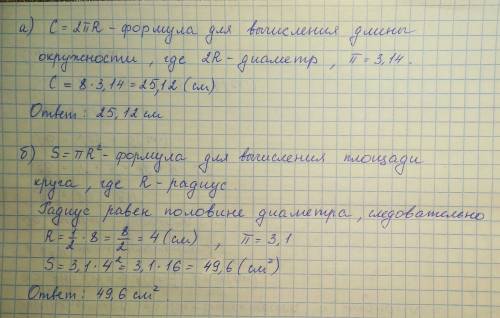 а) C = 2πR - формула для вычисления длины
окружности, где 2R - диаметр, π = 3,14.
C = 8·3,14 = 25,12 (см)
Ответ: 25,12 см
б) S = πR² - формула для вычисления площади
круга, где R - радиус.
Радиус равен половине диаметра, следовательно
R = 1/2 · 8 = 8/2 = 4 (см), π = 3,1
S = 3,1 · 4² = 3,1 · 16 = 49,6 (см²)
Ответ: 49,6 см².